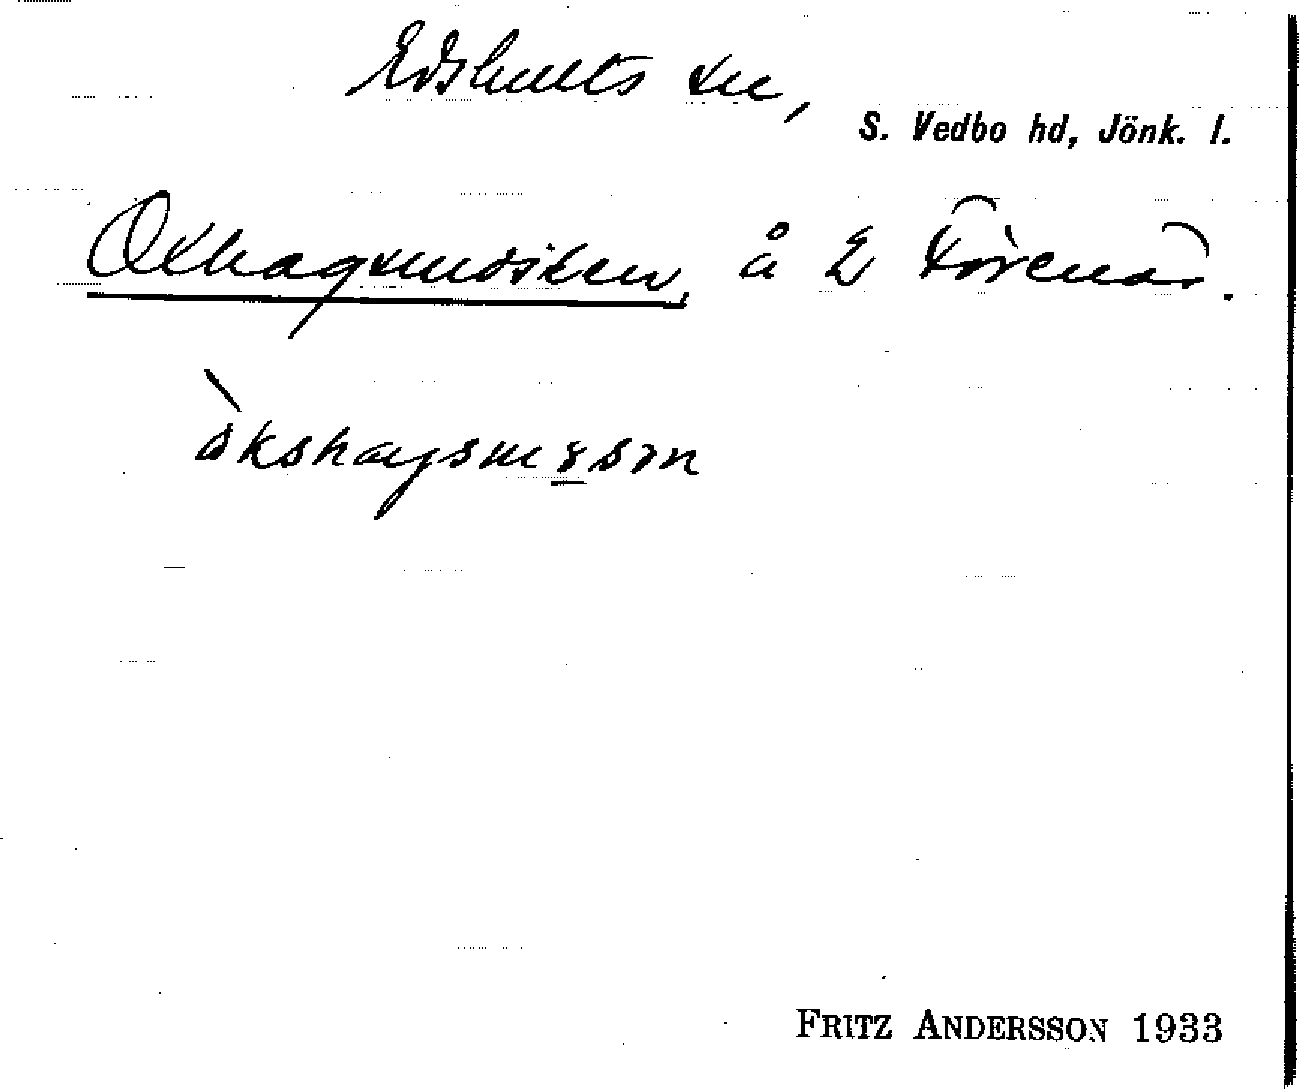 Edshults sn,
S. Vedbo hd, Jönk. l.
Oxhagsmossen, å EFörenäs.
okshagsmosn
FRITZ ANDERSSON 1933